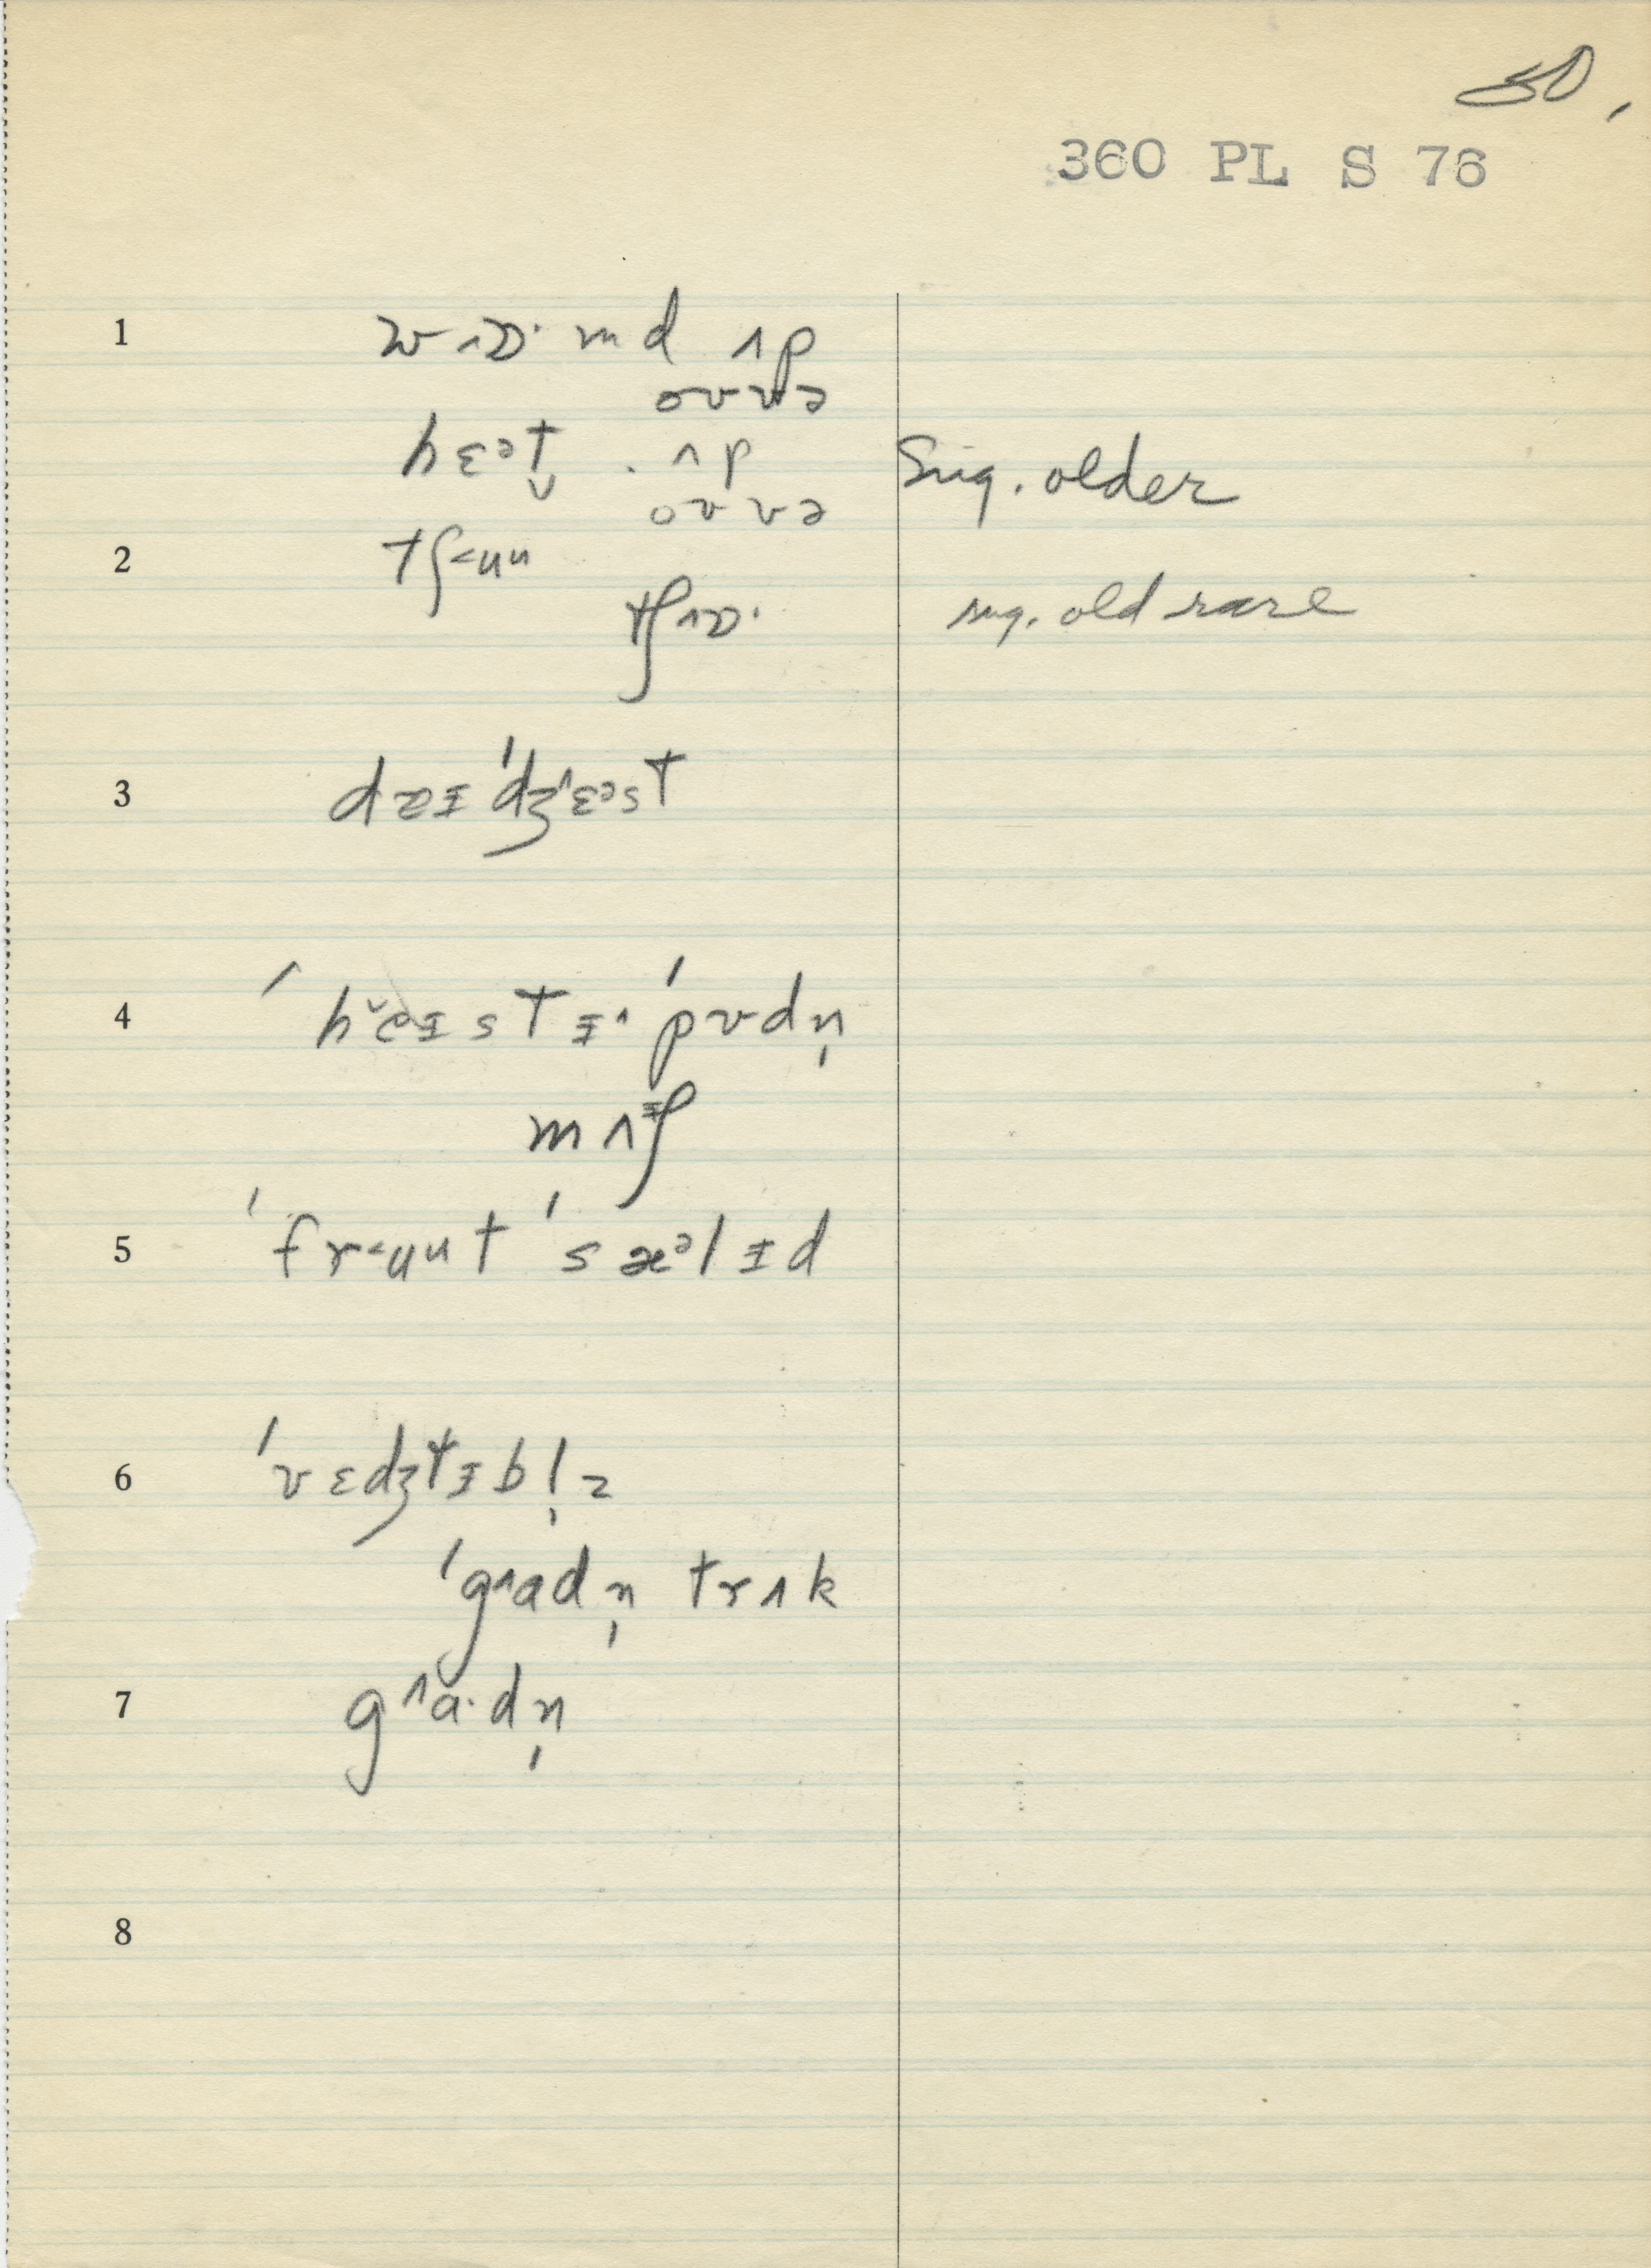 360 PL S 76
1 w^ɒ· md ʌp
oʊvə
hɛᵊt̬ . ʌp Sug. older
oʊvə
2 tʃ<uu
tʃ^ɒ· sug. old rare
3 daɪ ˈdʒ^ɛᵊst
4 ˈheɪstɪ^ ˈpʊdn̩
mʌʃ
5 ˈfr<uut ˈsæᵊlɪd
6 ˈvɛdʒtɪbl̩z
ˈg^adn̩ trʌk
7 g^a·dn̩
8